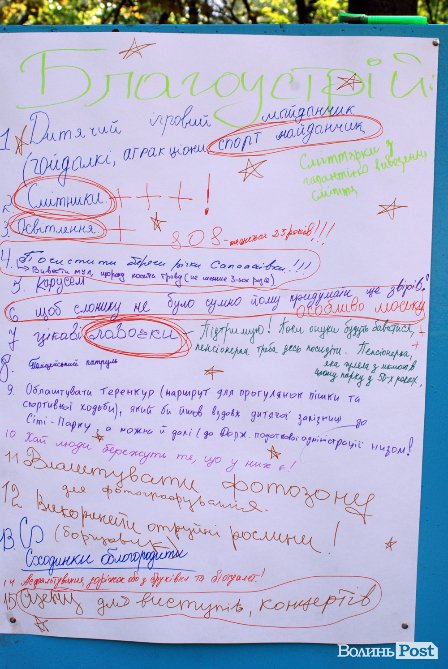 Благоустрій:
1 Дитячий ігровий майданчик
(гойдалкі, атракціони, спорт майданчик
Смттярки з
гарантією вивозення
сміття
2. Смітники + + + !
3. Освітлення + + +
SOS - 23 років!!!
4. Почистити береги річки Сапалаївки!!!
→ Вивезти мул, щороку косити траву (не менше 3-ох разів)
5 Карусель
6 щоб слонику не було сумно йому придумати ще звірів.
особливо моську
7 цікаві лавочки
Підтримую! Коли онуки будуть бавитися,
пенсіонерка треба десь посидіти. Пенсіонерка,
яка гуляє з мамою в
цьому парку з 50-х років.
8. Поліцейський патруль
9 Облаштувати теренкур (маршрут для прогулянок пішки та
спортивної ходьби), який би йшов вздовж дитячої залізниці до
Сіті-Парку, а можна й далі (до Держ. податкової адміністрації низом!
10 Хай люди бережуть те, що у них є!
11 Влаштувати фотозону
для фотографування.
12 Викорінити отруйні рослини!
(борщовик)
13 Сходинки облагородити
14 Асфальтування доріжок або з бруківки та біотуалет!
15 Сцену для виступів, концертів
ВолиньPost